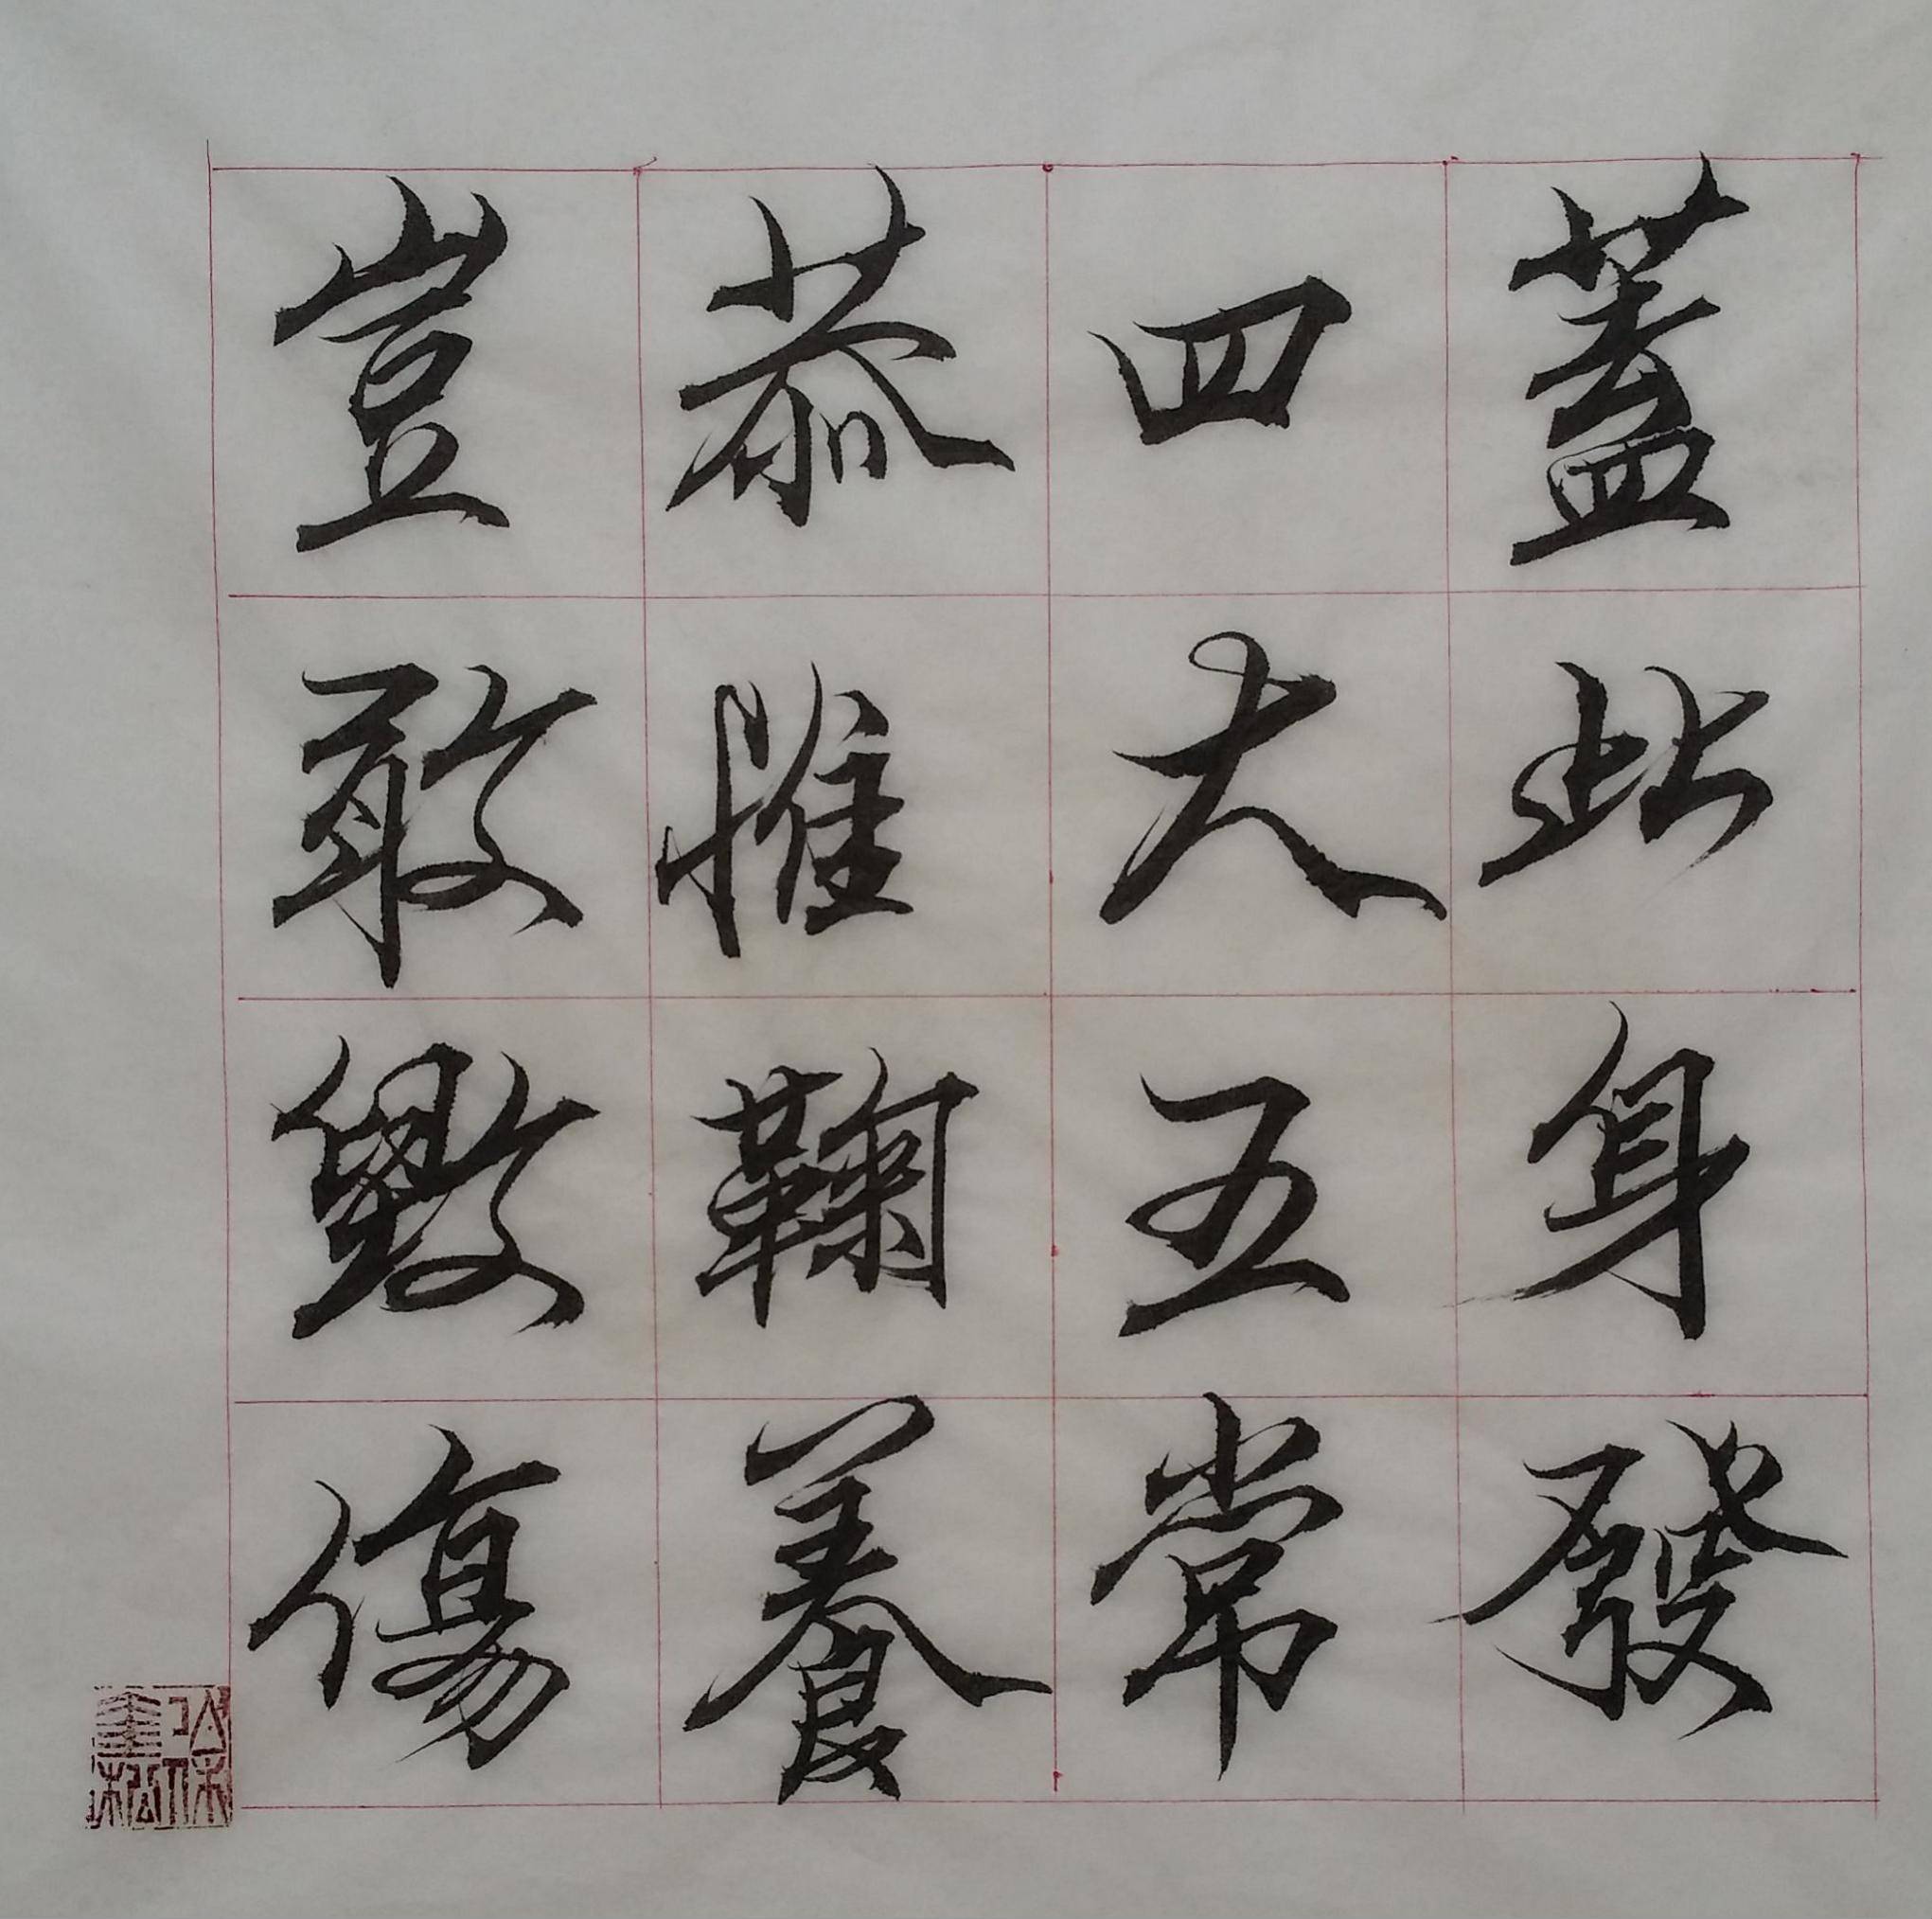 蓋此身發
四大五常
恭惟鞠養
豈敢毀傷